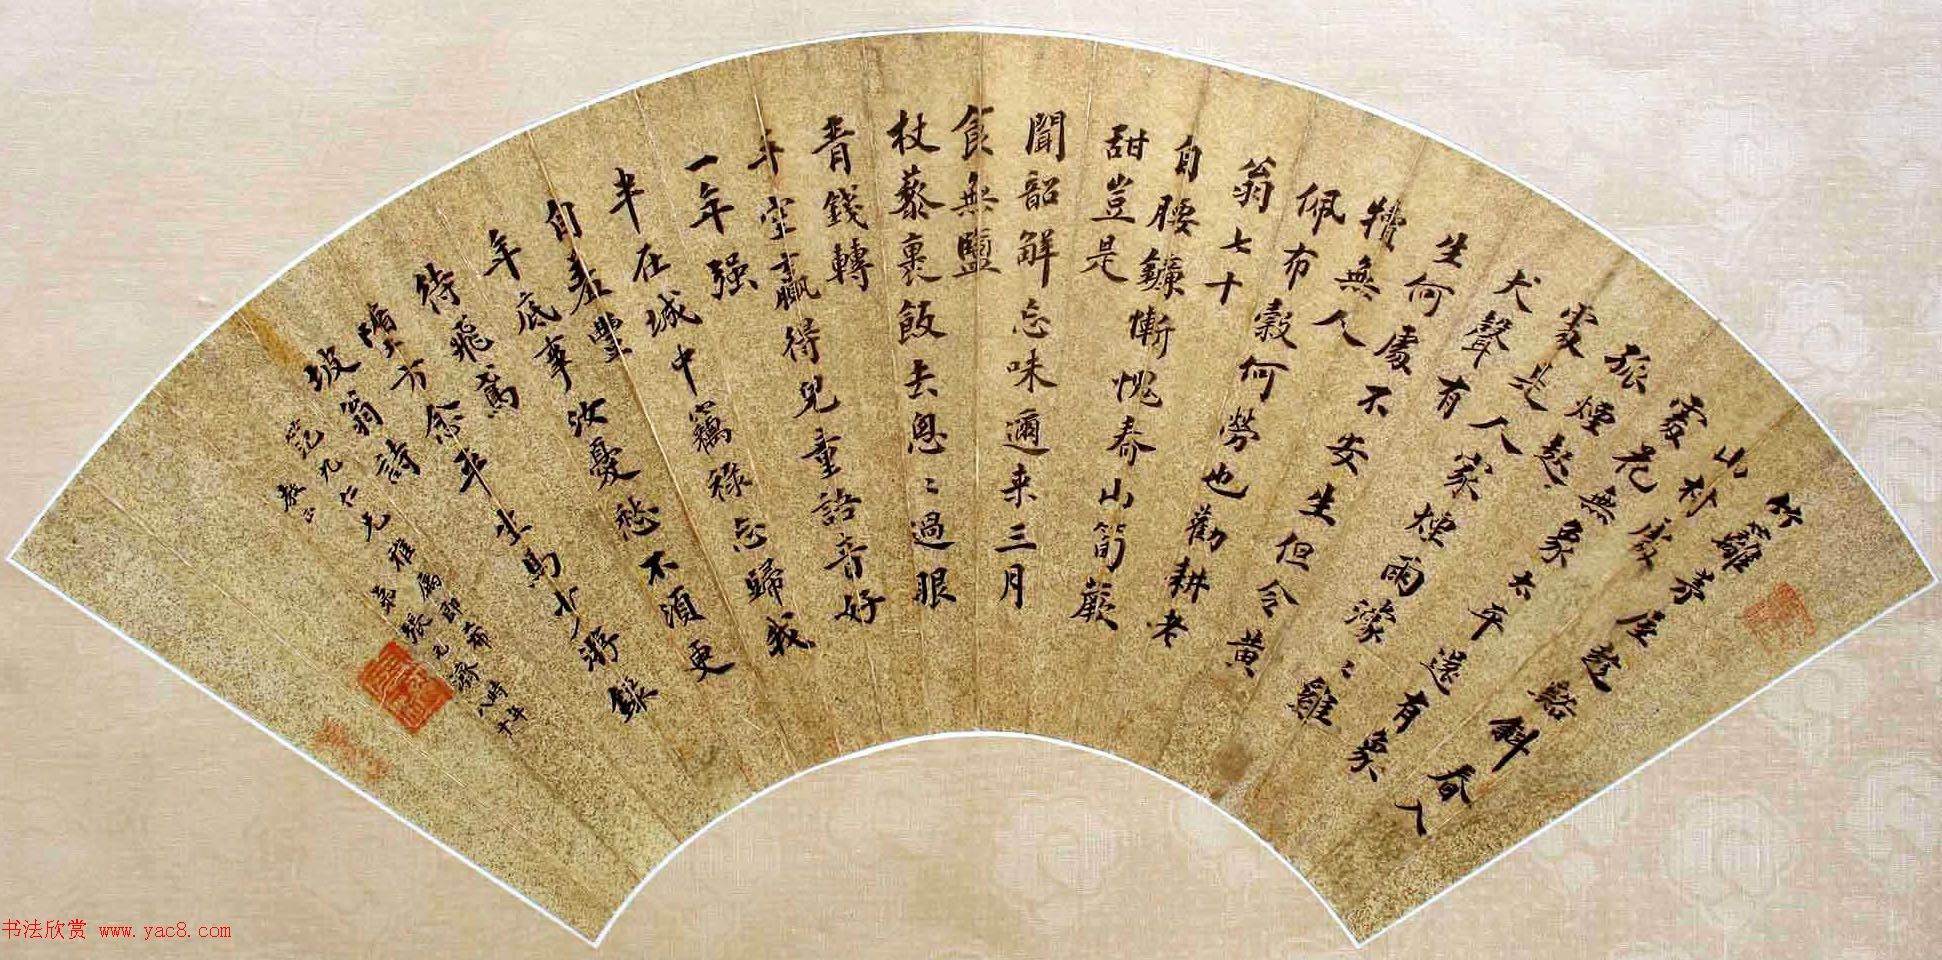 竹籬茅屋趁谿斜春入
山村處
處花無象太平還有象
孤煙起
處是人家煙雨濛〻雞
犬聲有
生何處不安生但令黃
犢無人
佩布穀何勞也勸耕老
翁七十
自腰鐮慚愧春山筍蕨
甜豈是
聞韶解忘味邇来三月
食無鹽
杖藜裹飯去悤〻過眼
青錢轉
手空贏得兒童語音好
一年强
半在城中竊祿忘歸我
自羞豐
年底事汝憂愁不須更
待飛鳶
墮方念平生馬少游錄
坡翁詩
範九仁兄雅屬即希
教正
弟張元濟時年八十
书法欣赏 www.yac8.com